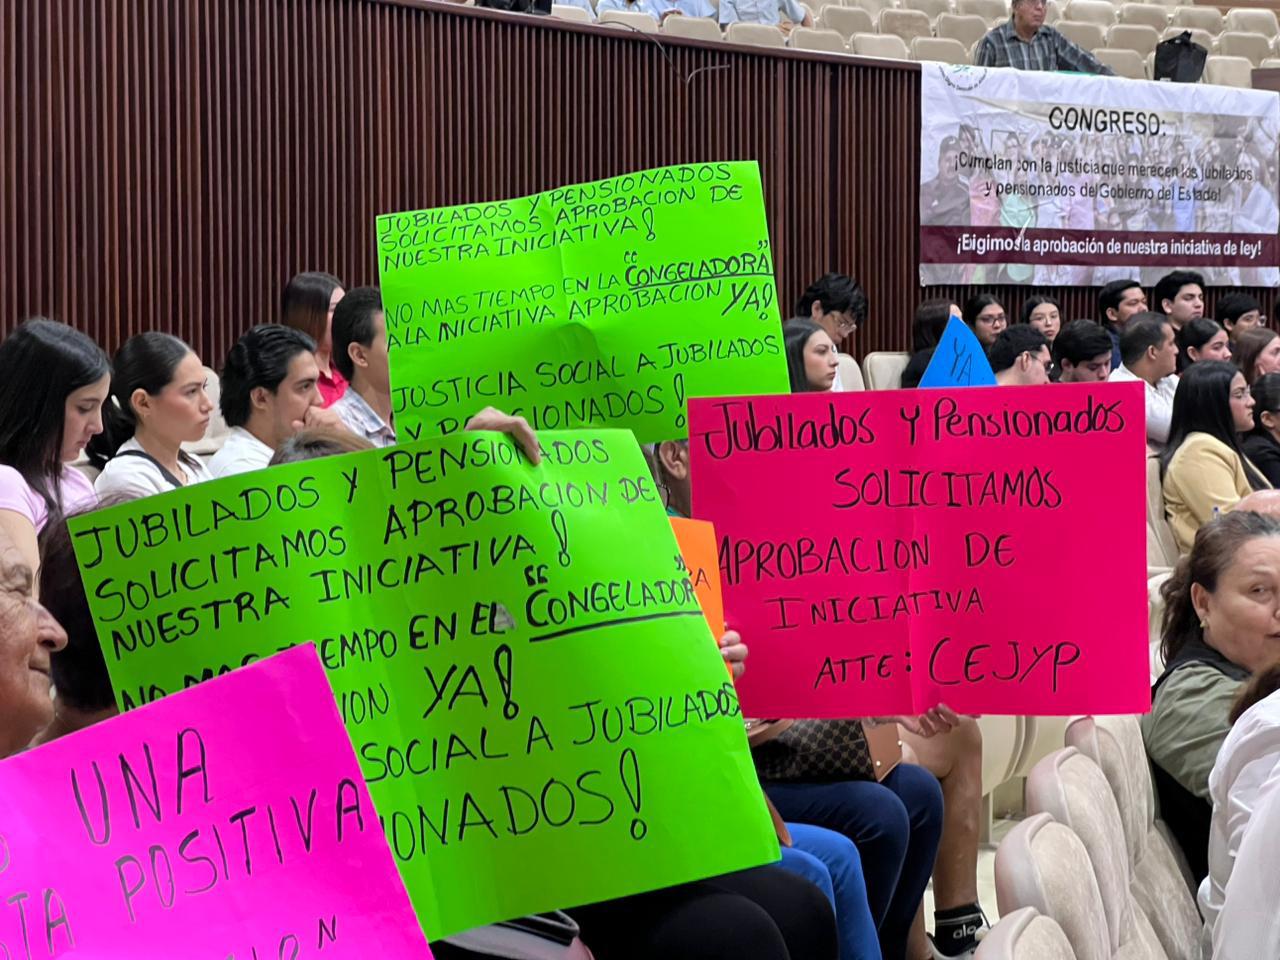 CONGRESO:
¡Cumplan con la justicia que merecen los jubilados
y pensionados del Gobierno del Estado!
¡Exigimos la aprobación de nuestra iniciativa de ley!
JUBILADOS Y PENSIONADOS
SOLICITAMOS APROBACION DE
NUESTRA INICIATIVA!
NO MAS TIEMPO EN LA "CONGELADORA"
A LA INICIATIVA APROBACION YA!
JUSTICIA SOCIAL A JUBILADOS
Y PENSIONADOS!
YA
Jubilados y Pensionados
SOLICITAMOS
APROBACION DE
INICIATIVA
ATTE: CEJYP
JUBILADOS Y PENSIONADOS
SOLICITAMOS APROBACION DE
NUESTRA INICIATIVA!
NO MAS TIEMPO EN EL "CONGELADOR"
ION YA!
SOCIAL A JUBILADOS
IONADOS!
UNA
POSITIVA